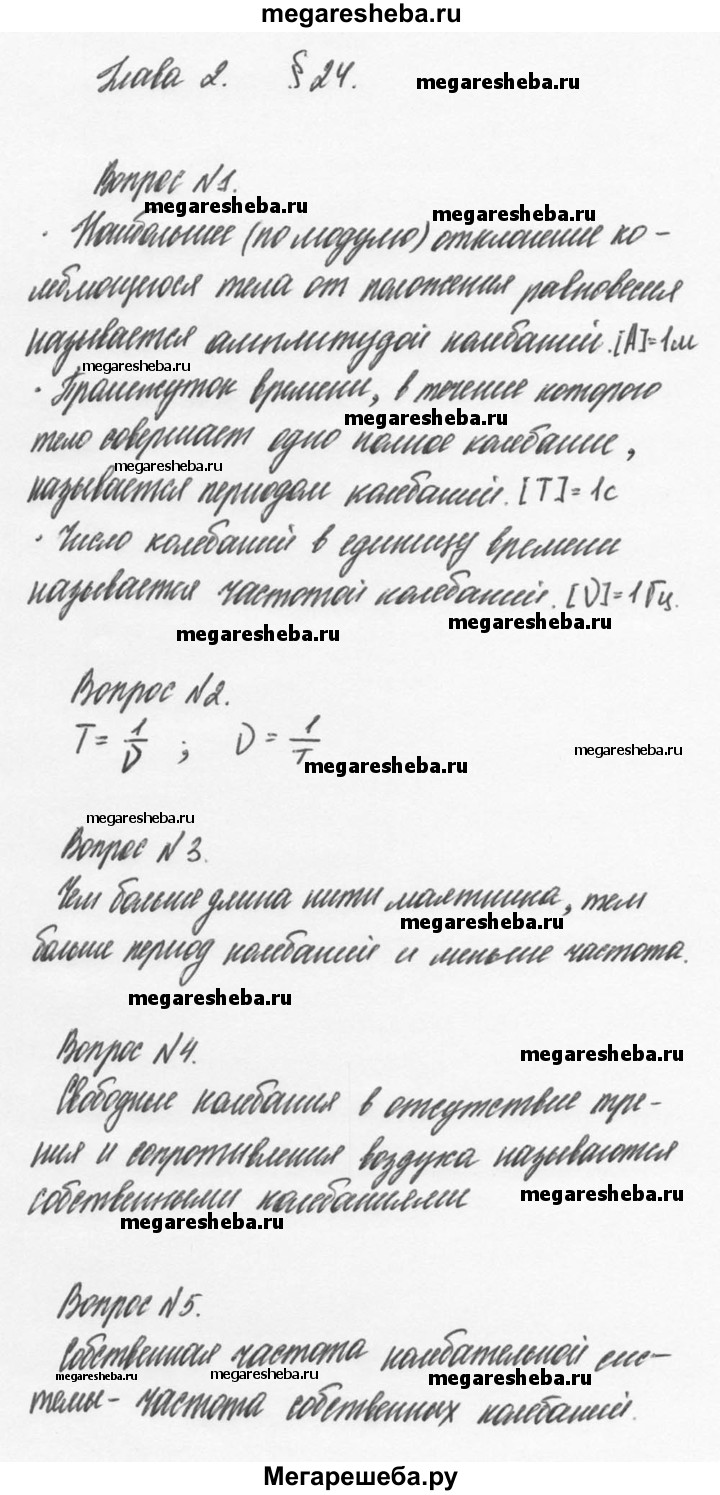 megaresheba.ru
Глава 2. § 24.
megaresheba.ru
Вопрос №1.
megaresheba.ru
megaresheba.ru
· Наибольшее (по модулю) отклонение ко-
леблющегося тела от положения равновесия
называется амплитудой колебаний. [A]=1м
megaresheba.ru
· Промежуток времени, в течение которого
megaresheba.ru
тело совершает одно полное колебание,
megaresheba.ru
называется периодом колебаний. [T]=1с
· Число колебаний в единицу времени
называется частотой колебаний. [ν]=1Гц.
megaresheba.ru
megaresheba.ru
Вопрос №2.
T = 1/ν ; ν = 1/T
megaresheba.ru
megaresheba.ru
megaresheba.ru
Вопрос №3.
Чем больше длина нити маятника, тем
megaresheba.ru
больше период колебаний и меньше частота.
megaresheba.ru
Вопрос №4.
megaresheba.ru
Свободные колебания в отсутствие тре-
ния и сопротивления воздуха называются
собственными колебаниями
megaresheba.ru
megaresheba.ru
Вопрос №5.
Собственная частота колебательной сис-
megaresheba.ru
megaresheba.ru
megaresheba.ru
темы - частота собственных колебаний.
Мегарешеба.ру